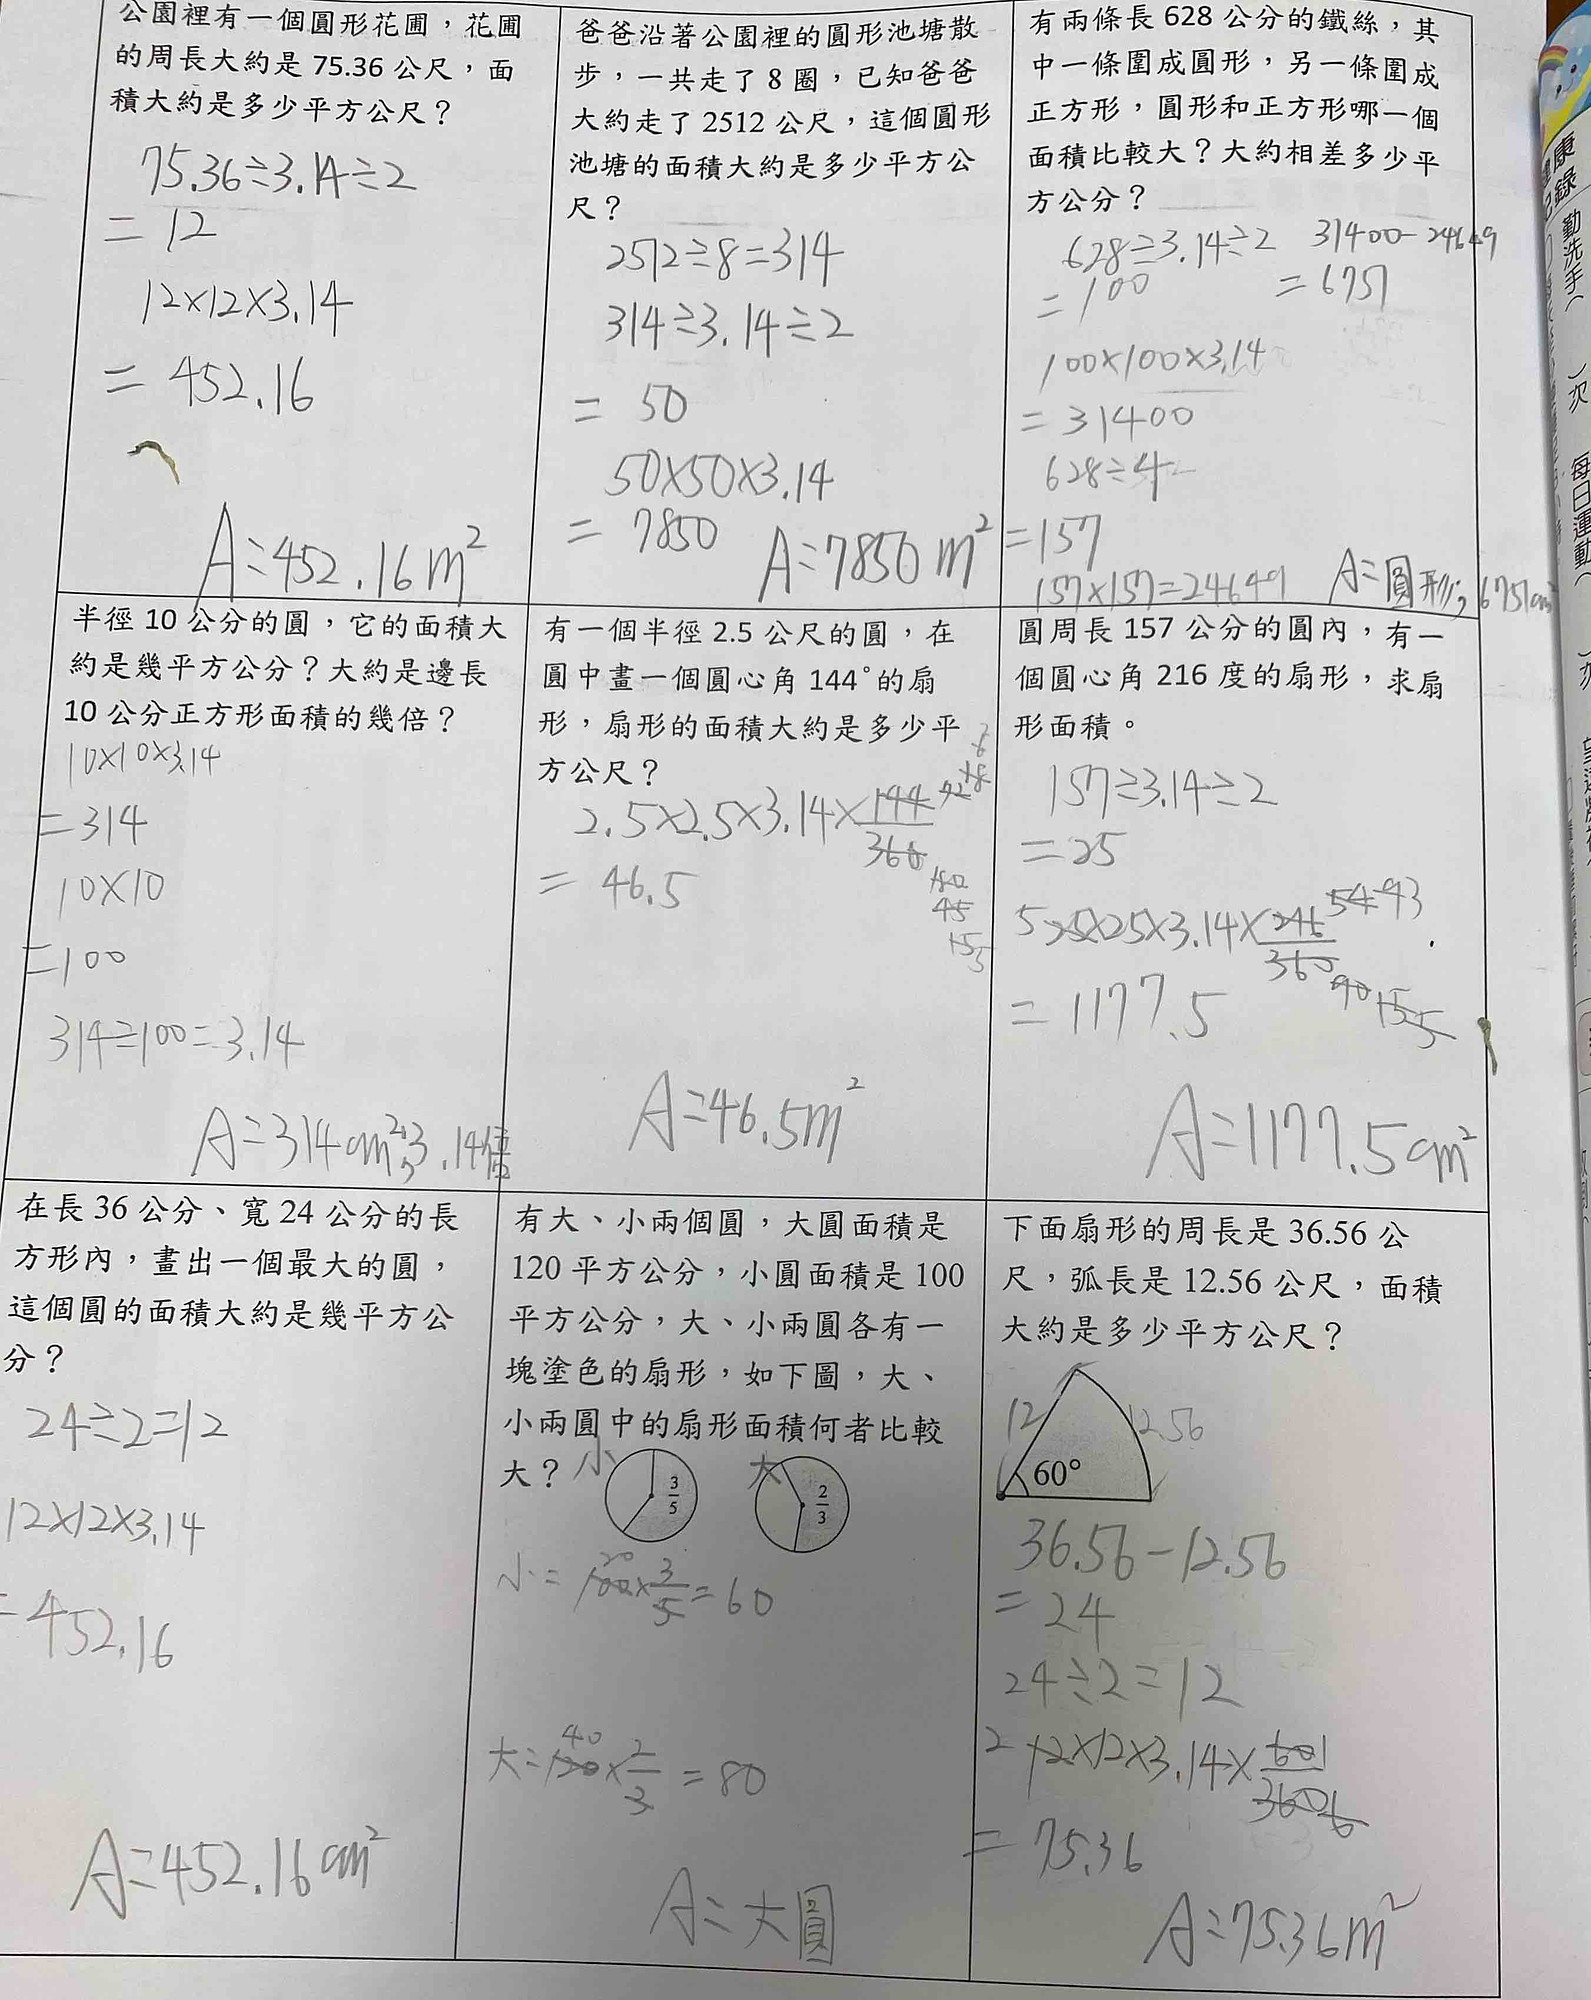 公園裡有一個圓形花圃，花圃
的周長大約是 75.36 公尺，面
積大約是多少平方公尺？
75.36÷3.14÷2
= 12
12×12×3.14
= 452.16
A：452.16 m²
爸爸沿著公園裡的圓形池塘散
步，一共走了 8 圈，已知爸爸
大約走了 2512 公尺，這個圓形
池塘的面積大約是多少平方公
尺？
2512÷8=314
314÷3.14÷2
= 50
50×50×3.14
= 7850
A：7850 m²
有兩條長 628 公分的鐵絲，其
中一條圍成圓形，另一條圍成
正方形，圓形和正方形哪一個
面積比較大？大約相差多少平
方公分？
628÷3.14÷2
= 100
100×100×3.14
= 31400
628÷4
= 157
157×157=24649
31400-24649
= 6751
A：圓形；6751cm²
半徑 10 公分的圓，它的面積大
約是幾平方公分？大約是邊長
10 公分正方形面積的幾倍？
10×10×3.14
= 314
10×10
= 100
314÷100=3.14
A：314cm²；3.14倍
有一個半徑 2.5 公尺的圓，在
圓中畫一個圓心角 144°的扇
形，扇形的面積大約是多少平
方公尺？
2.5×2.5×3.14×144/360
= 46.5
A：46.5m²
圓周長 157 公分的圓內，有一
個圓心角 216 度的扇形，求扇
形面積。
157÷3.14÷2
= 25
25×25×3.14×216/360
= 1177.5
A：1177.5cm²
在長 36 公分、寬 24 公分的長
方形內，畫出一個最大的圓，
這個圓的面積大約是幾平方公
分？
24÷2=12
12×12×3.14
= 452.16
A：452.16cm²
有大、小兩個圓，大圓面積是
120 平方公分，小圓面積是 100
平方公分，大、小兩圓各有一
塊塗色的扇形，如下圖，大、
小兩圓中的扇形面積何者比較
大？
小 3/5 大 2/3
小=100×3/5=60
大=120×2/3=80
A：大圓
下面扇形的周長是 36.56 公
尺，弧長是 12.56 公尺，面積
大約是多少平方公尺？
12 12.56
60°
36.56-12.56
= 24
24÷2=12
12×12×3.14×60/360
= 75.36
A：75.36m²
勤洗手（ ）次
每日運動（